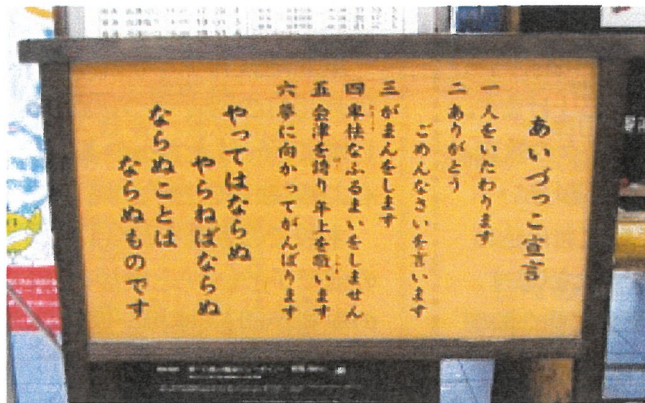 あいづっこ宣言
一 人をいたわります
二 ありがとう
ごめんなさいを言います
三 がまんをします
四 卑怯なふるまいをしません
五 会津を誇り年上を敬います
六 夢に向かってがんばります
やってはならぬ
やらねばならぬ
ならぬことは
ならぬものです